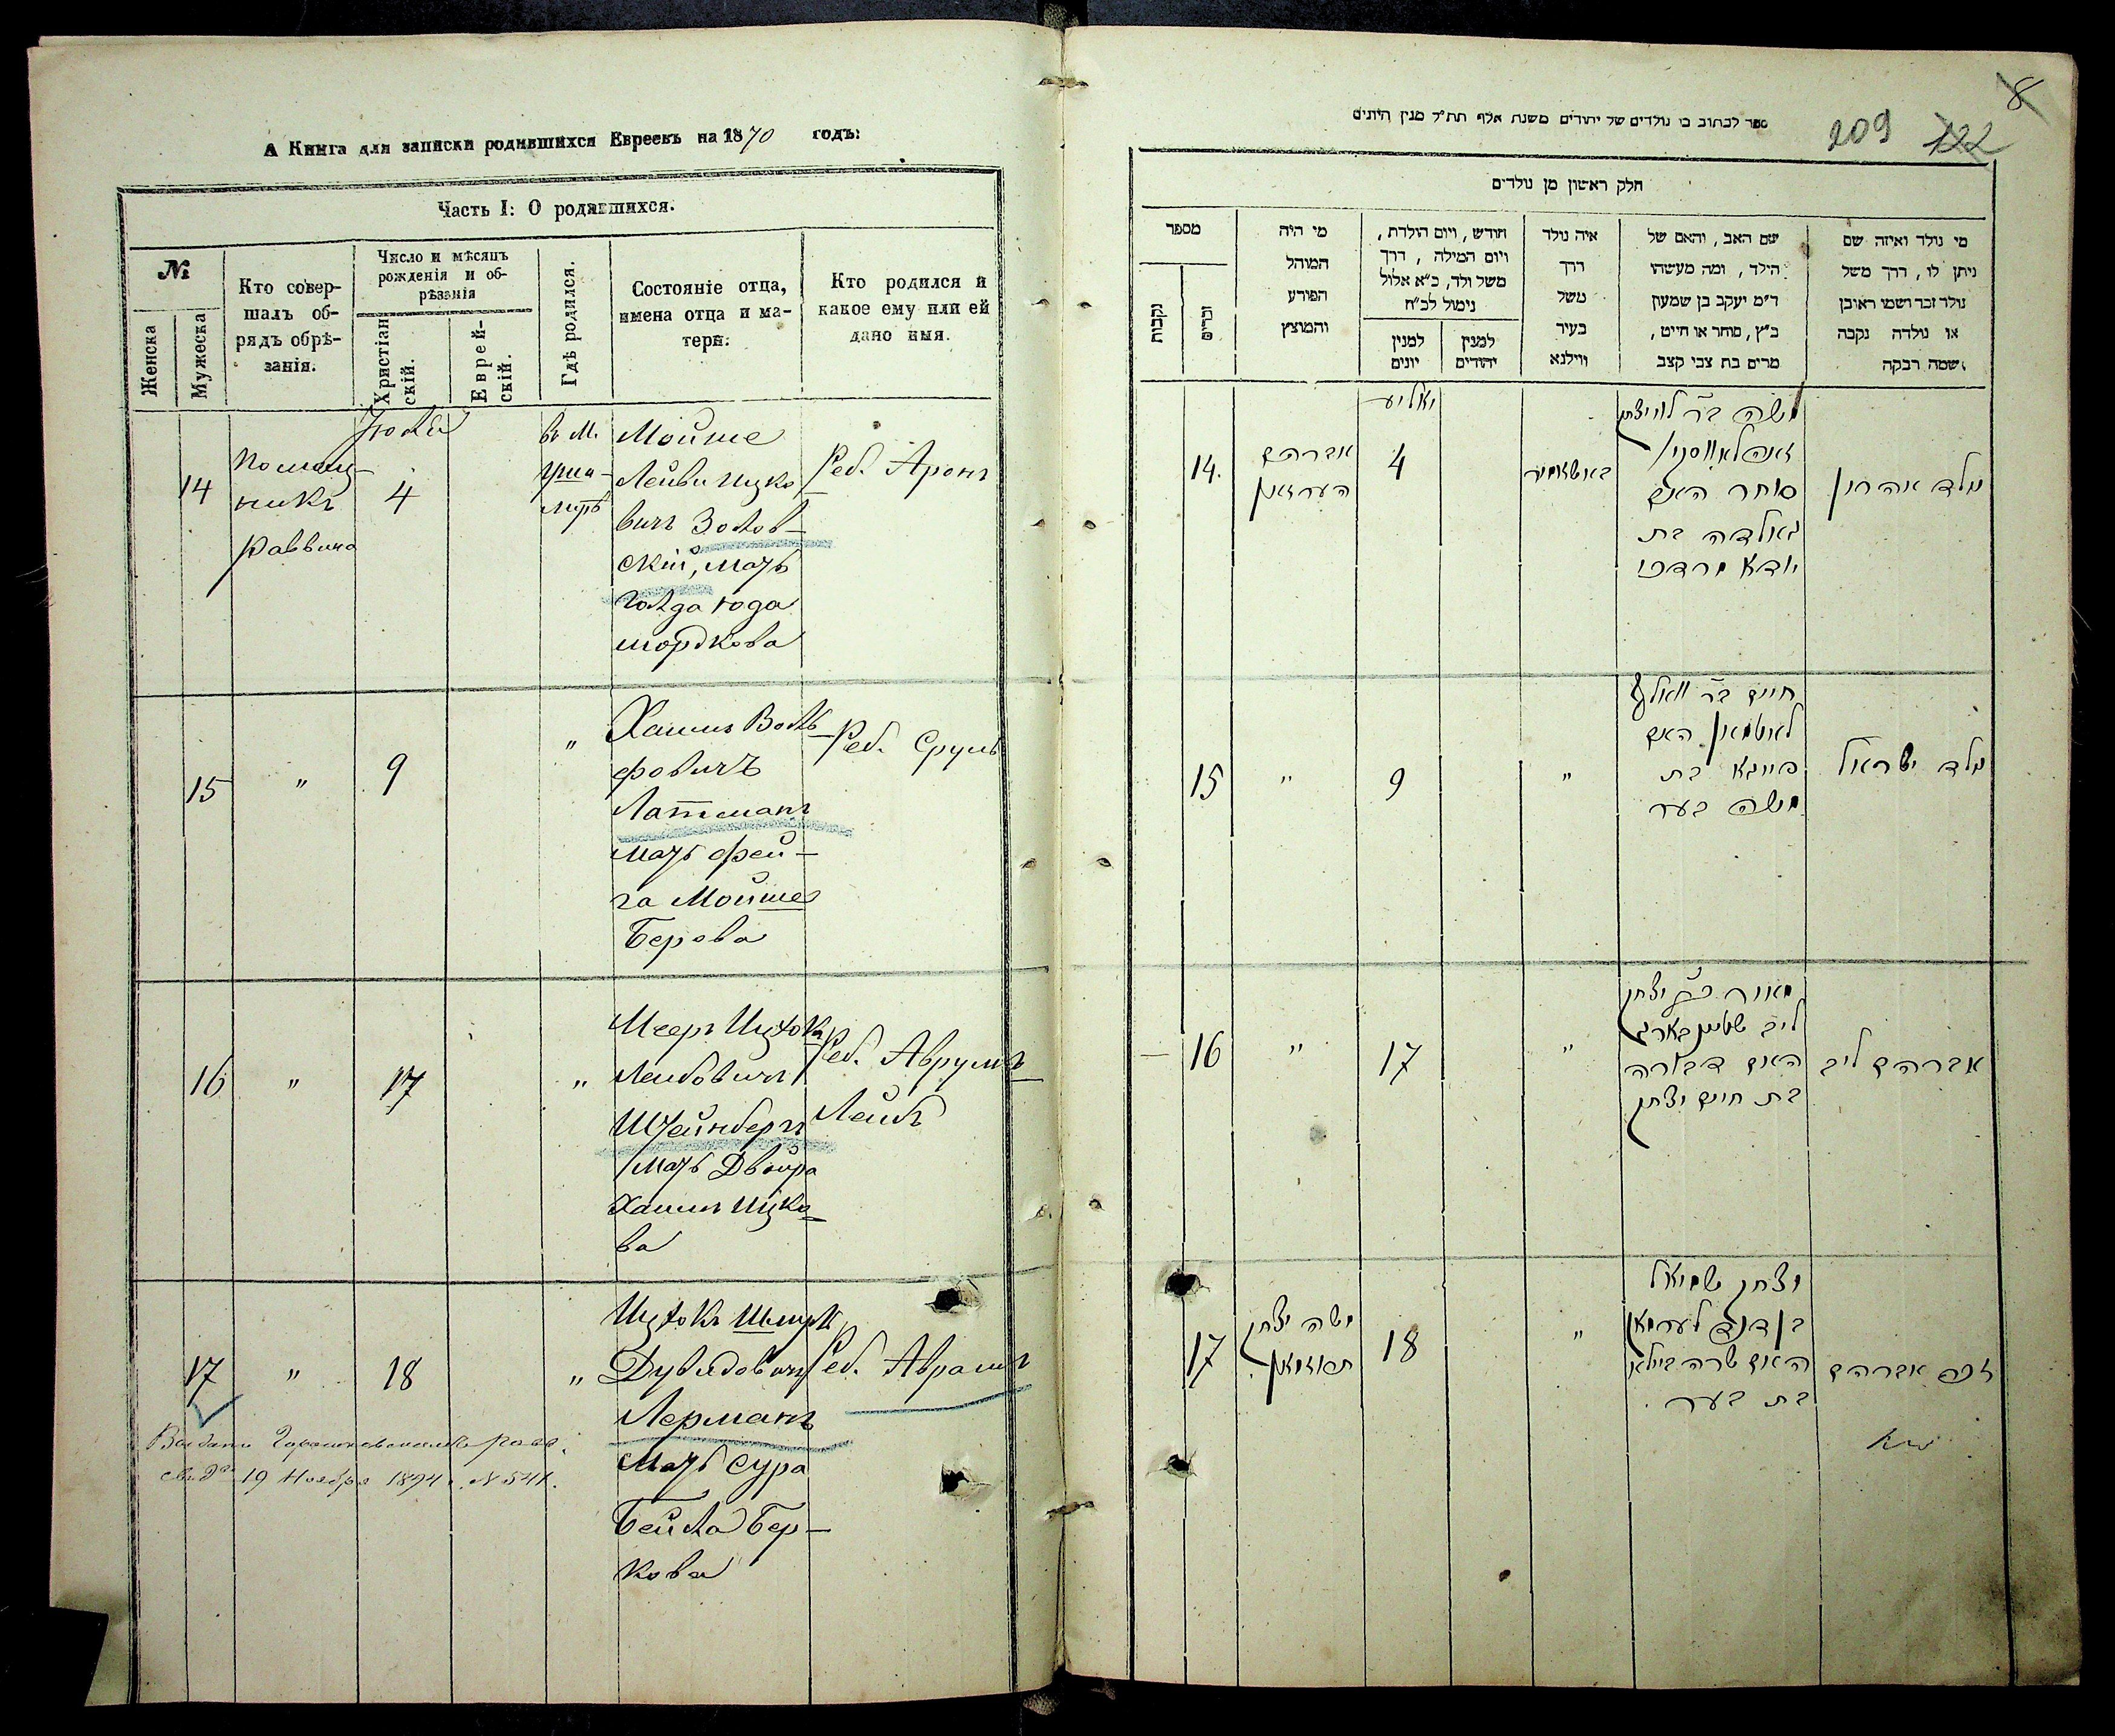 А Книга для записки родившихся Евреевъ на 1870 годъ:
Часть I: О родившихся.
№
Женска
Мужеска
Кто совер-
шалъ об-
рядъ обрѣ-
занія.
Число и мѣсяцъ
рожденія и об-
рѣзанія
Христіан
скій.
Еврей-
скій.
Гдѣ родился.
Состояніе отца,
имена отца и ма-
тери.
Кто родился и
какое ему или ей
дано имя.
Июля
14
Помощ-
никъ
раввина
4
въ М.
Мойше
Лейви Ицко
вичъ Золов-
скій, мать
Голда Юда
мордкова
Реб. Аронъ
15
"
9
"
Хаимъ Воль
фовичъ
Латманъ
мать Фей-
га Мойше
Берова
Реб. Сруль
16
"
17
"
Мееръ Ицхокъ
Лейбовичъ
Штейнбергъ
мать Двойра
Хаимъ Ицко-
ва
Реб. Аврумъ
Лейбъ
17
"
18
"
Ицхокъ Шмуль
Дувидовичъ
Лерманъ
мать Сура
Бейла Бер-
кова
Реб. Аврамъ
19 Ноября 1894 г. № 541.
8
209
122
ספר לכתוב בו נולדים של יהודים משנת אלף תת"ל מנין היונים
חלק ראשון מן נולדים
מספר
נקבות
זכרים
מי היה
המוהל
הפורע
והמוצץ
חודש, ויום הולדת,
ויום המילה, דרך
משל ולד, כ"א אלול
נימול לכ"ח
למנין
יונים
למנין
יהודים
איה נולד
דרך
משל
בעיר
ווילנא
שם האב, והאם של
הילד, ומה מעשהו
ד"מ יעקב בן שמעון
כ"ץ, סוחר או חייט,
מרים בת צבי קצב
מי נולד ואיזה שם
ניתן לו, דרך משל
נולד זכר ושמו ראובן
או נולדה נקבה
ושמה רבקה
יאליע
14.
אברהם
4
משה
סוחר האם
גאלדה בת
יודא מרדכי
נולד אהרון
15
"
9
"
חיים בר וואלף
לאטמאן האם
פייגא בת
משה בער
נולד ישראל
16
"
17
"
מאיר בר יצחק
ליב שטיינבארג
האם דבורה
בת חיים יצחק
אברהם ליב
17
משה יצחק
18
"
יצחק שמואל
בן דוד לערמאן
האם שרה ביילא
בת בער
זכר אברהם